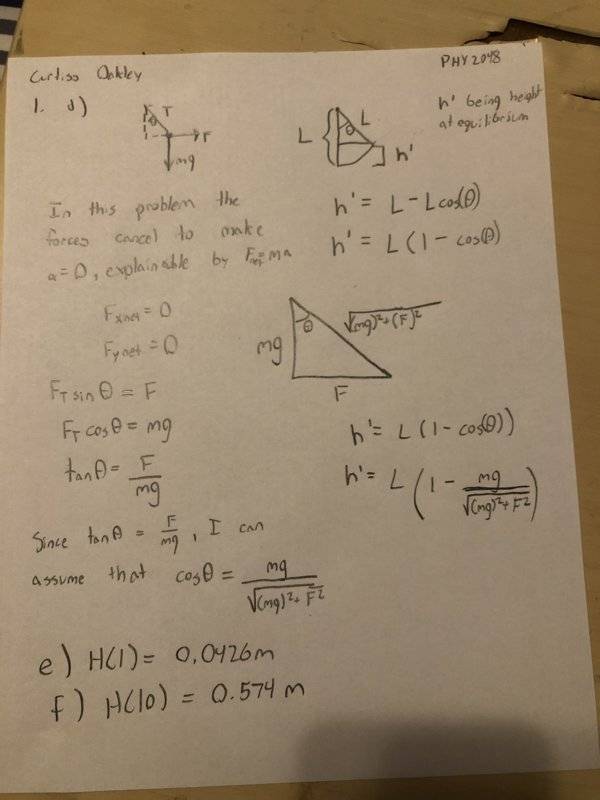 Curtiss Oakley
PHY 2048
1. d)
θ T
F
mg
L
θ L
h'
h' being height
at equilibrium
In this problem the
forces cancel to make
a = 0, explainable by Fnet = ma
h' = L - Lcos(θ)
h' = L (1 - cos(θ)
Fxnet = 0
Fynet = 0
mg
θ
√(mg)²+(F)²
F
FT sin θ = F
FT cos θ = mg
tan θ = F/mg
h' = L (1 - cos(θ))
h' = L (1 - mg/√(mg)²+F²)
Since tan θ = F/mg, I can
assume that cos θ = mg/√(mg)²+F²
e) H(1) = 0.0426m
f) H(10) = 0.574 m